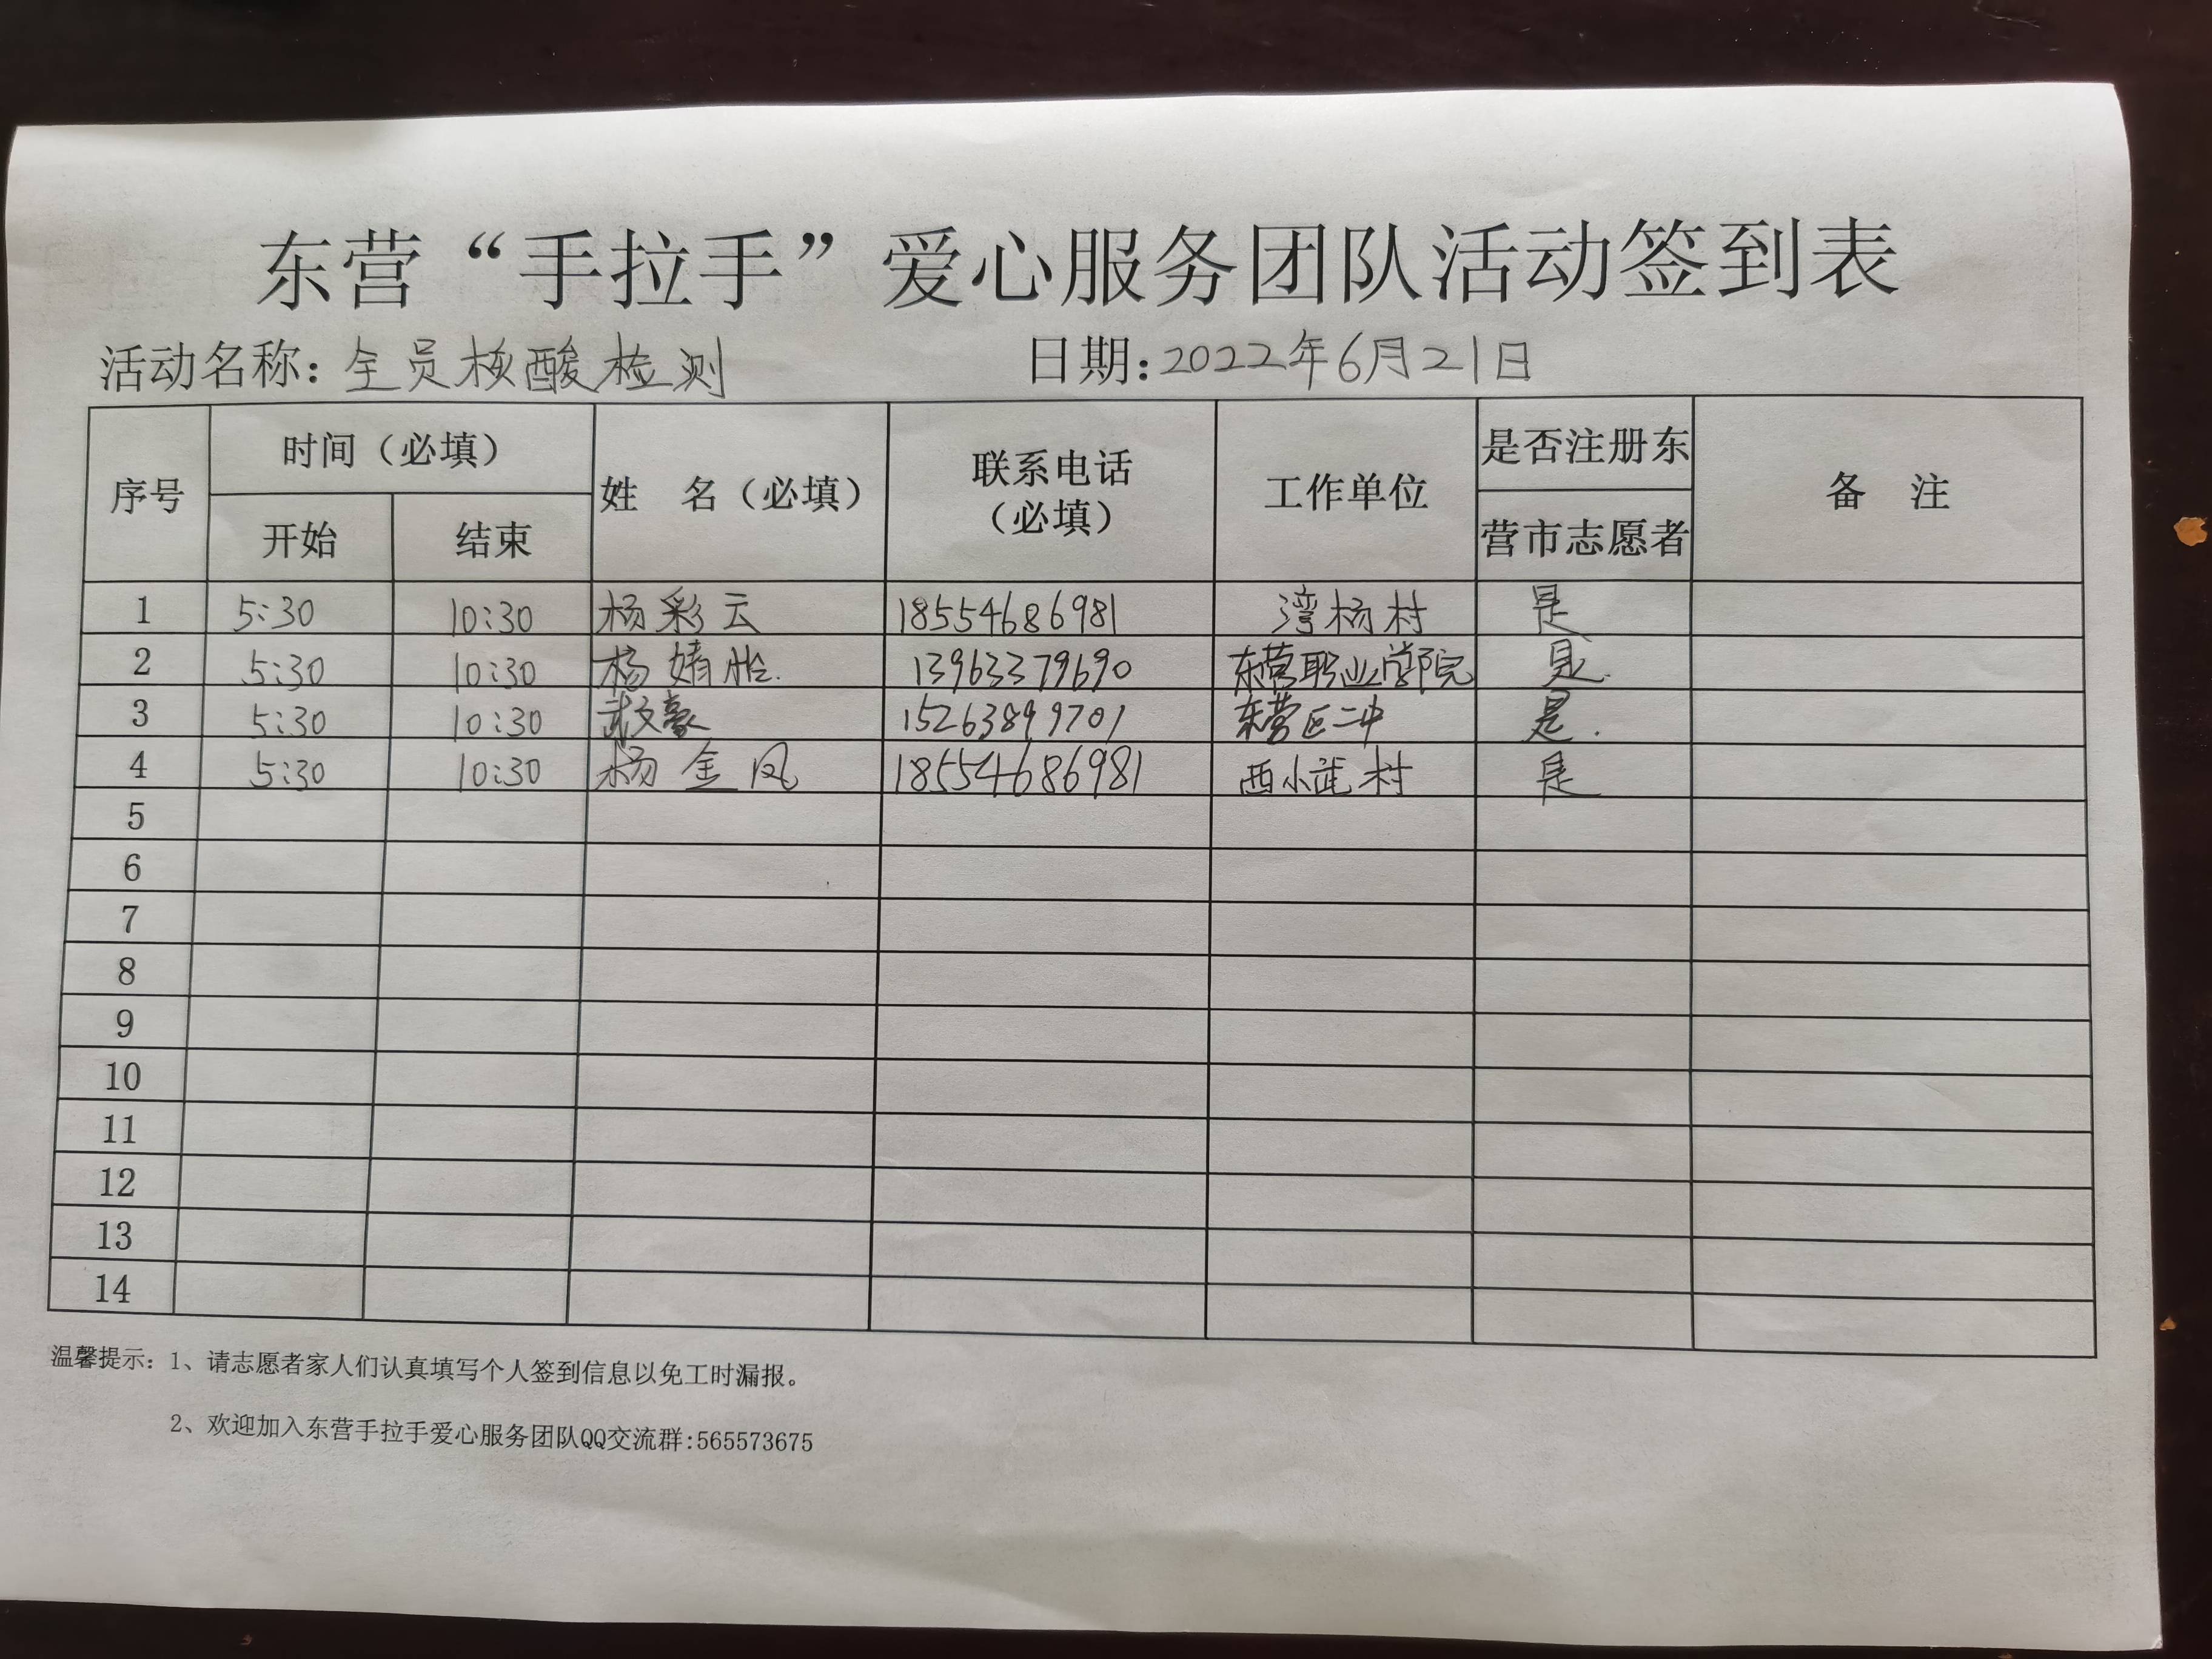 东营“手拉手”爱心服务团队活动签到表
活动名称：全员核酸检测 日期：2022年6月21日
序号 时间（必填） 姓 名（必填） 联系电话（必填） 工作单位 是否注册东营市志愿者 备 注
开始 结束
1 5:30 10:30 杨彩云 18554686981 湾杨村 是
2 5:30 10:30 杨婧怡. 13963379690 东营职业学院 是.
3 5:30 10:30 武文豪 15263899701 东营区二中 是.
4 5:30 10:30 杨金凤 18554686981 西小武村 是
5
6
7
8
9
10
11
12
13
14
温馨提示：1、请志愿者家人们认真填写个人签到信息以免工时漏报。
2、欢迎加入东营手拉手爱心服务团队QQ交流群:565573675